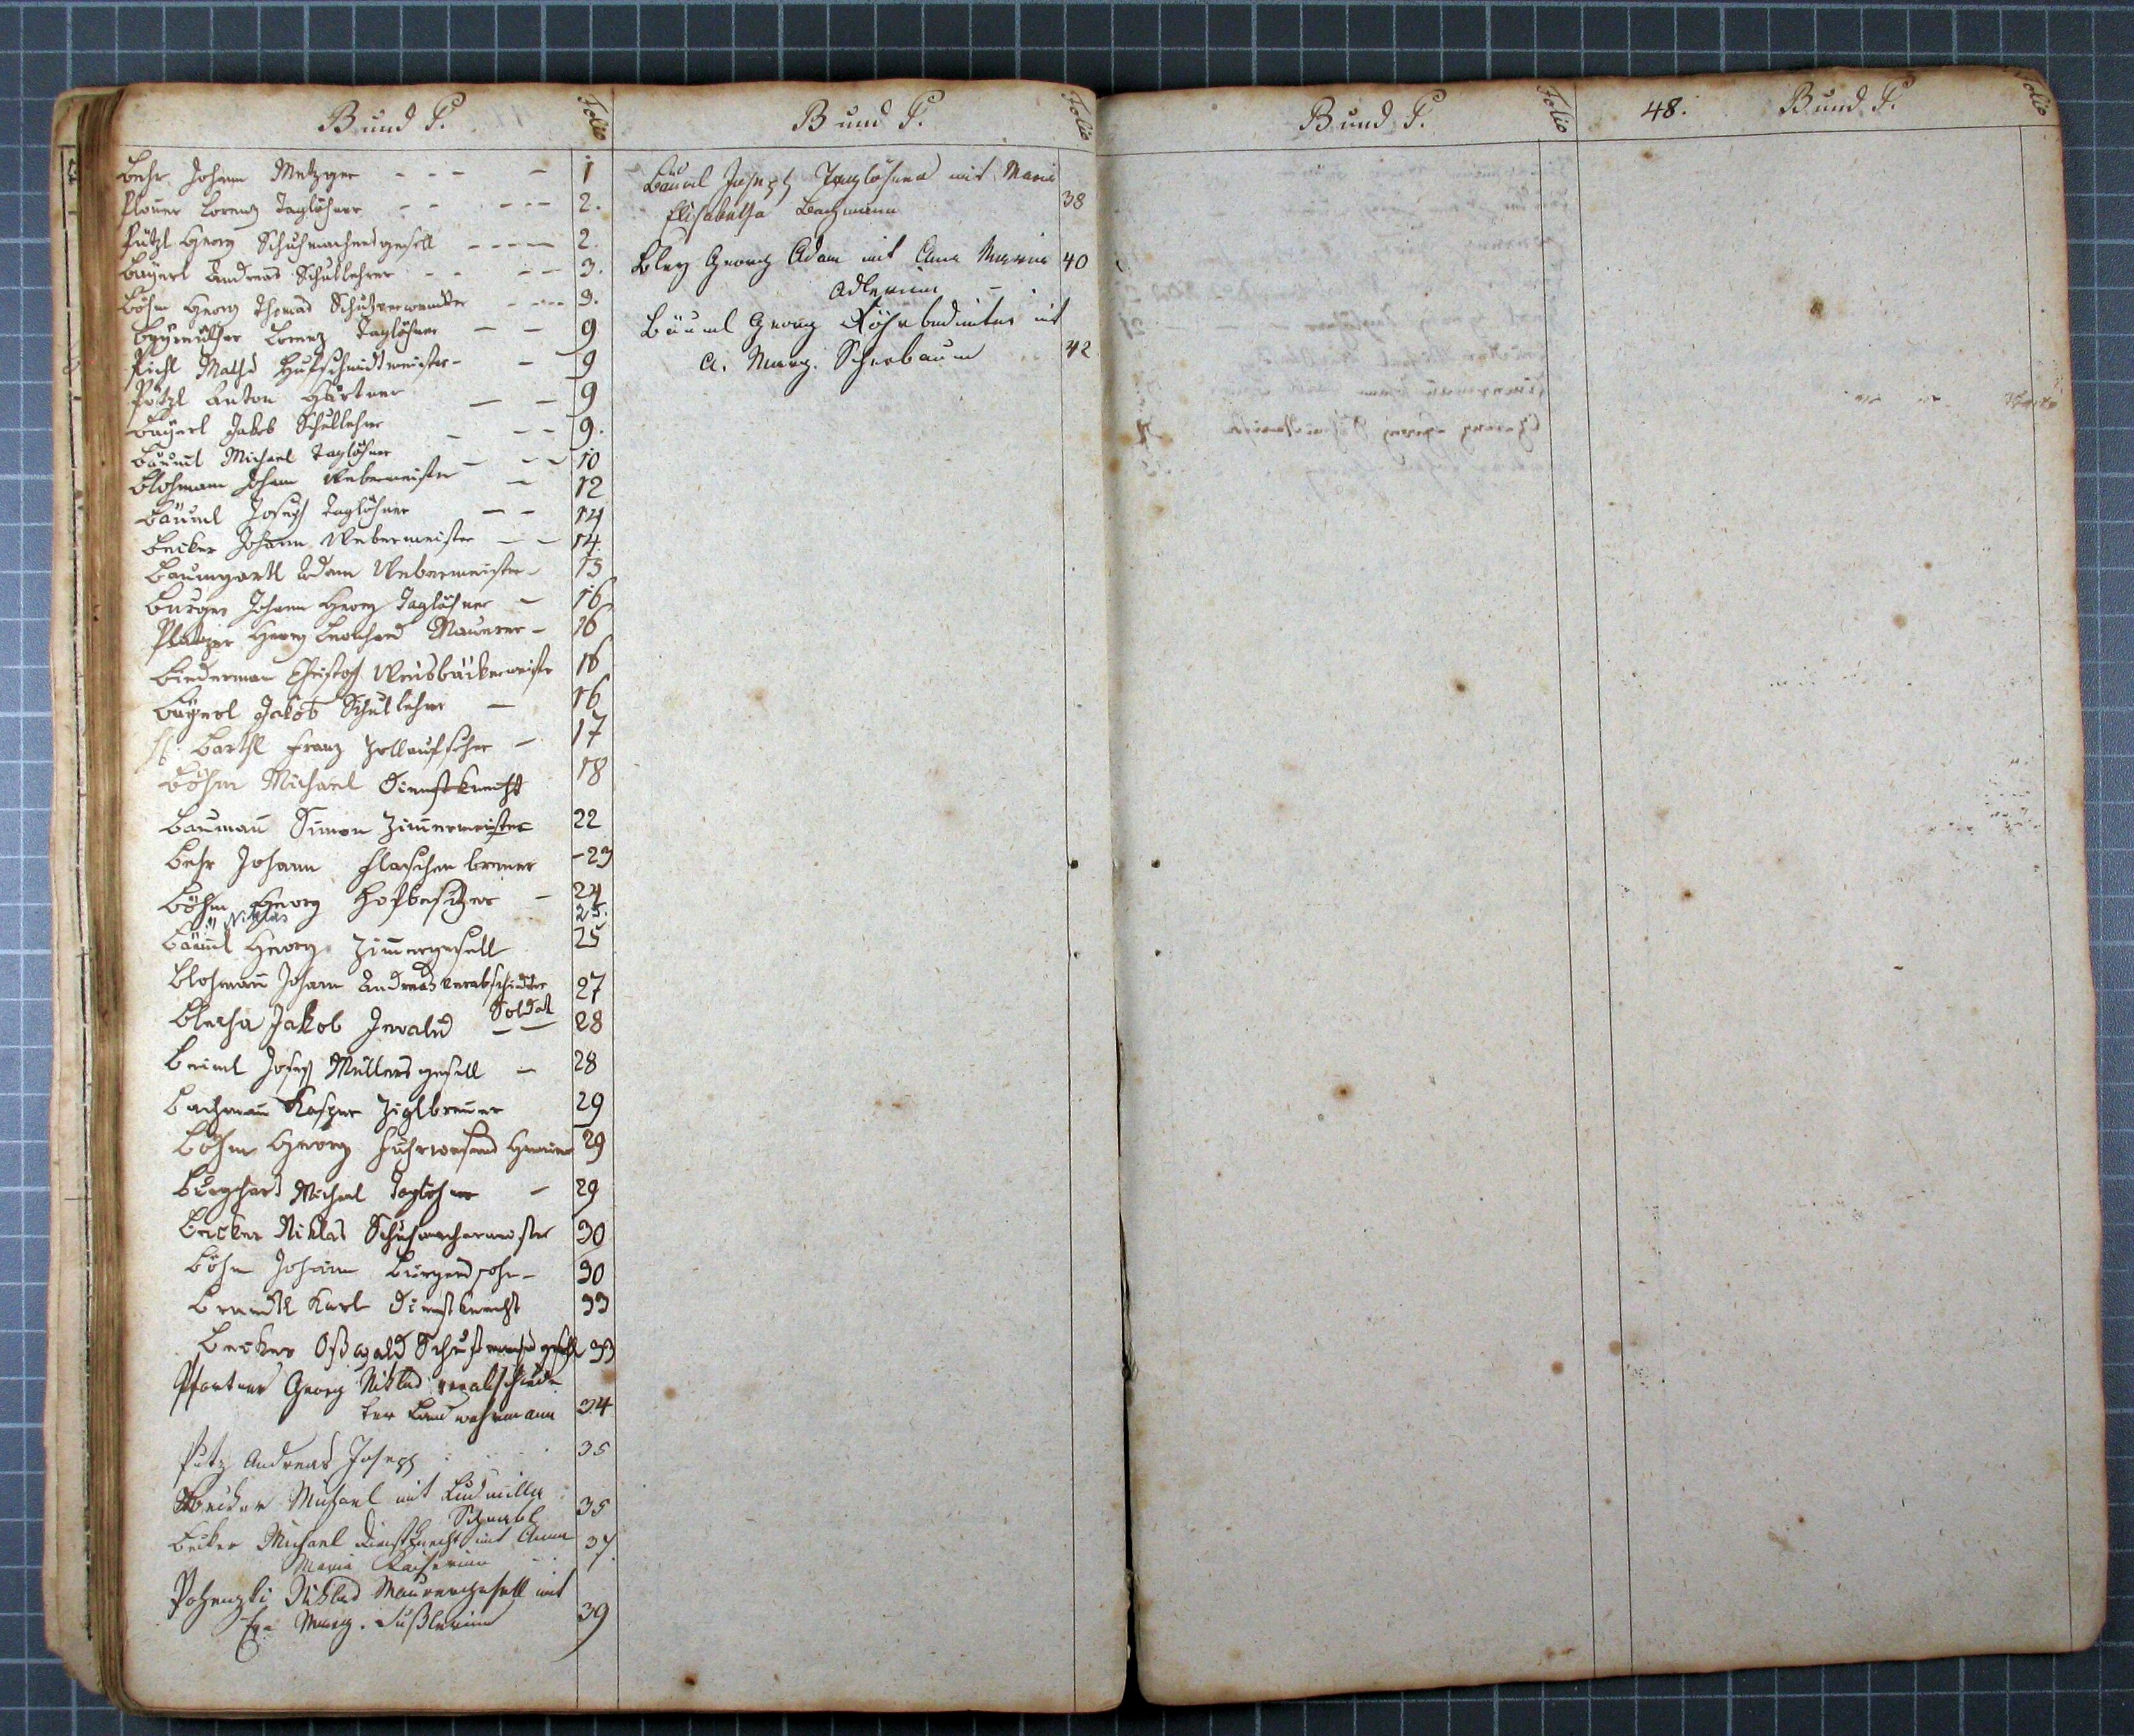 B und P.
Folio
Behr Johann Metzger - - - - 1
Ploner Lorenz Taglöhner - - - - - 2.
Pützl Georg Schuhmachersgesell - - - - 2.
Bayerl Andreas Schullehrer - - - - 3.
Böhm Georg Thomas Schutzverwandter - - - - 9.
Bayreuther Lorenz Taglöhner - - 9
Pichl Maths Hufschmidtmeister - - 9
Pötzl Anton Gärtner - - 9
Bayerl Jakob Schullehrer - - - 9.
Bäuml Michael Taglöhner - - - 10
Blohmann Johann Webermeister - 12
Bäuml Joseph Taglöhner - - 14
Becker Johann Webermeister - - 14.
Baumgartl Adam Webermeister - 15
Burger Johann Georg Taglöhner - 16
Platzer Georg Leonhard Maurer - 16
Biederman Christoph Weisbäckermeister 16
Bayerl Jakob Schullehrer - 16
Barthl Franz Zollaufseher - 17
Böhm Michael Dienstknecht 18
Baumañ Simon Zim̄ermeister 22
Behr Johann Flaschenbrenner - 23
Böhm Georg Hofbesitzer - 24
" Niklas 25.
Bäuml Georg Zim̄ergesell 25
Blohmañ Johann Andreas verabschiedeter 27
Soldat
Blecha Jakob Invalid - - 28
Beiml Joseph Müllersgesell - 28
Bachmañ Kasper Ziglbrenner 29
Böhm Georg Fuhrwesens 29
Burghard Michael Taglöhner - 29
Becker Niklas Schuhmachermeister 30
Böhm Johann Bürgerssohn - 30
Brandtl Karl Dienstknecht 33
Becker Oßwald Schuhmachergesell 33
Pfortner Georg Niklas verabschiede-
ter Landwehrmann 34
Putz Andreas Joseph 35
Becker Michael mit Ludmilla
Schnabl 35
Becker Michael Dienstknecht mit Anna 37.
Maria Kaiserinn
Niklas Maurergesell mit
Eva Marg. Süßlerinn 39
B und P.
Folio
Bäuml Joseph Taglöhner mit Maria
Elisabetha Bachmann 38
Bley Georg Adam mit Anna Maria 40
Adlerinn -
Bäuml Georg mit
A. Marg. Scherbaum 42
B und P.
Folio
48.
B und P.
Folio